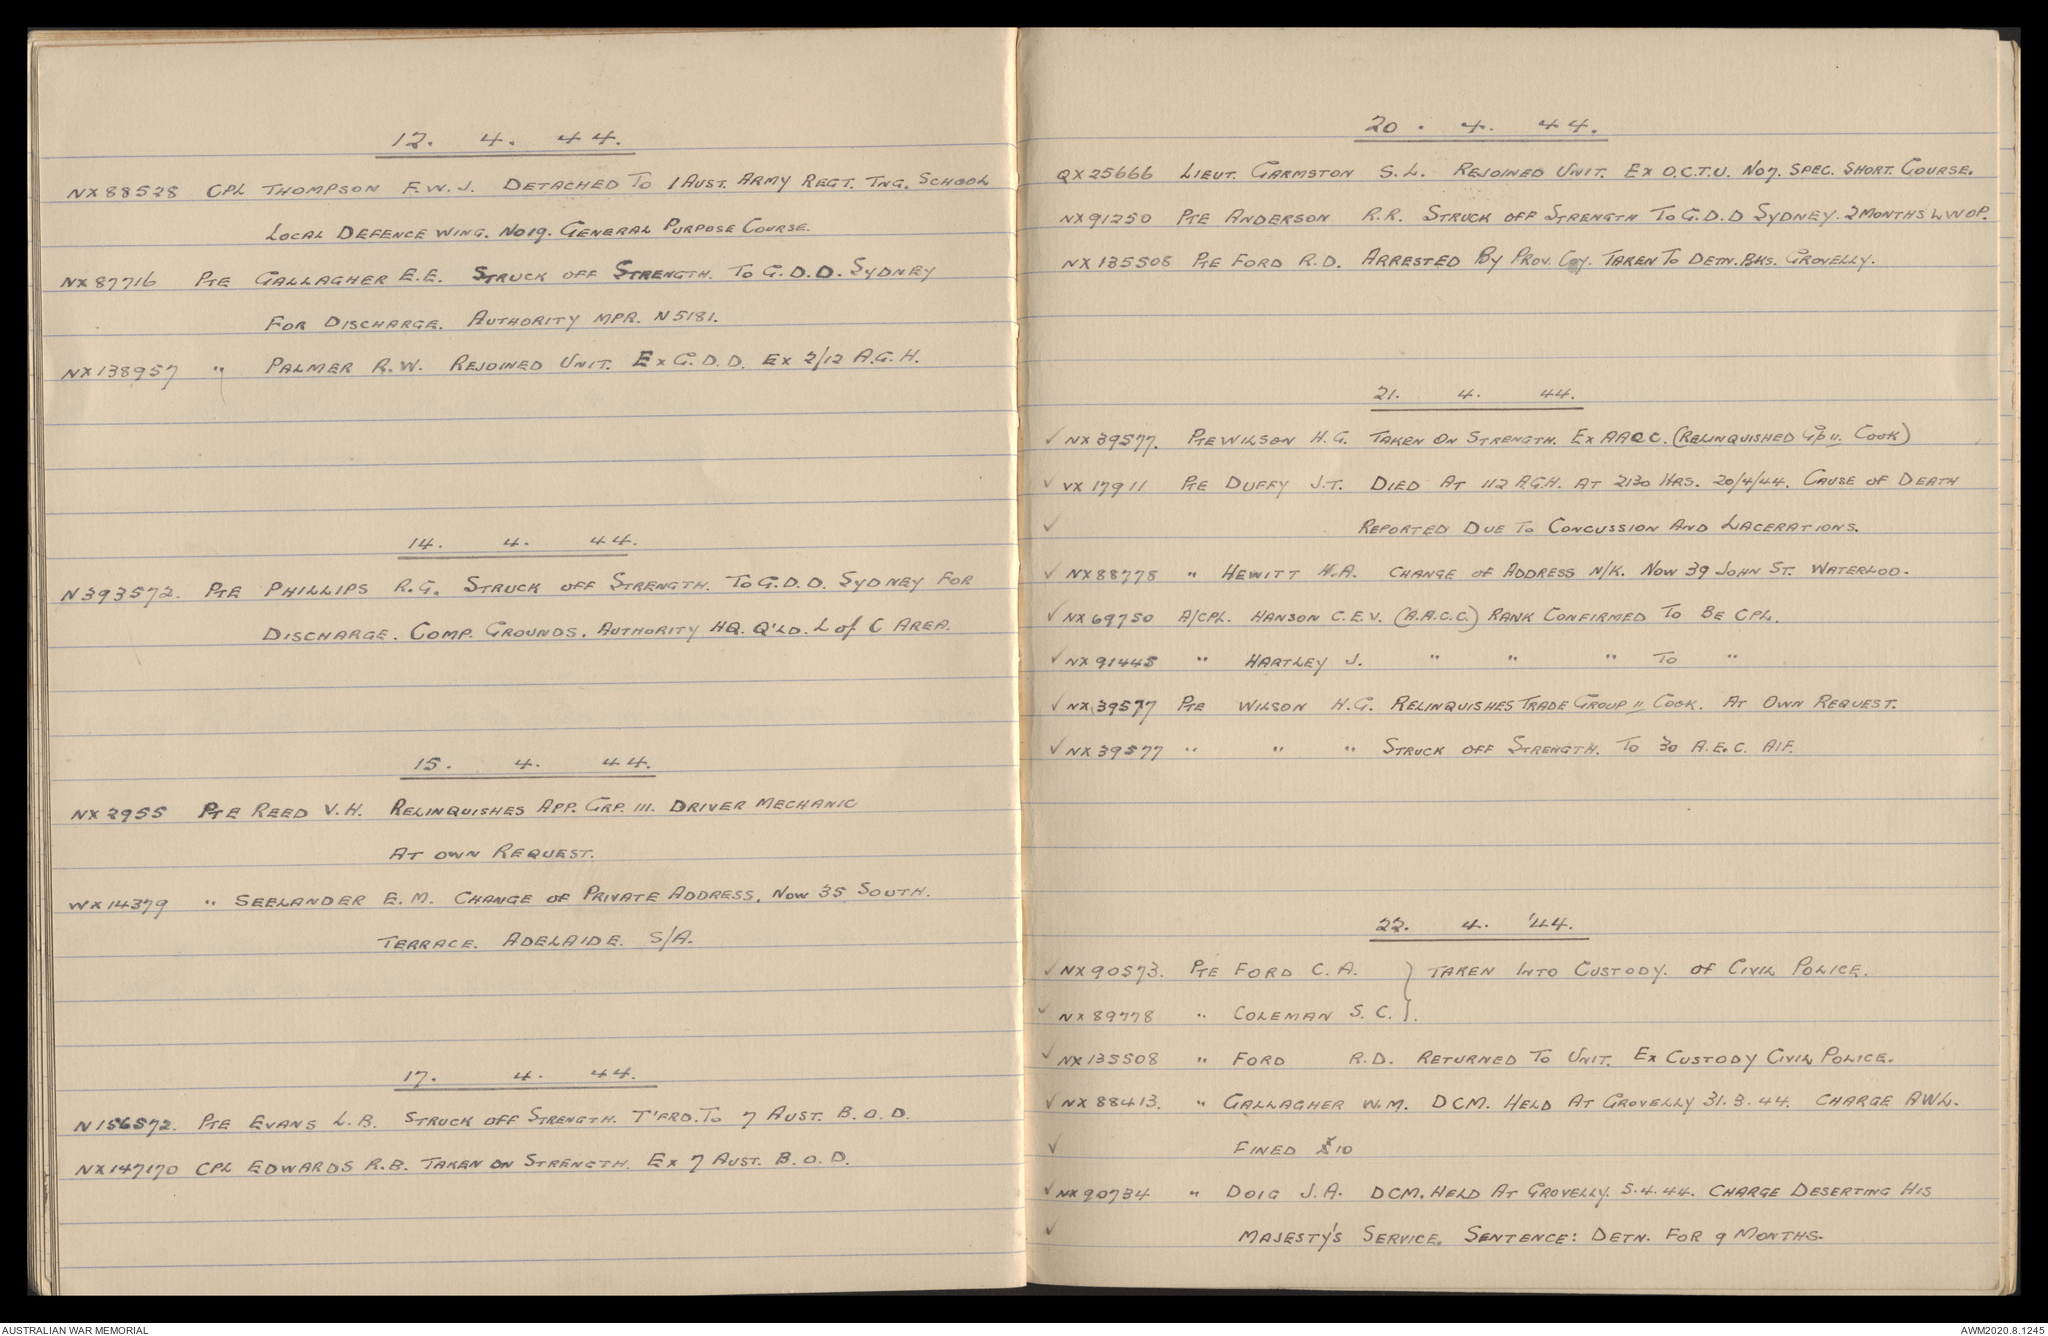 12. 4. 44.
NX88528 CPL THOMPSON F.W.J. DETACHED TO 1 AUST. ARMY REGT. TNG. SCHOOL
LOCAL DEFENCE WING. No19. GENERAL PURPOSE COURSE.
NX87716 PTE GALLAGHER E.E. STRUCK OFF STRENGTH. TO G.D.D. SYDNEY
FOR DISCHARGE. AUTHORITY MPR. N5181.
NX138957 " PALMER R.W. REJOINED UNIT. EX G.D.D. EX 2/12 A.G.H.
14. 4. 44.
N393572. PTE PHILLIPS R.G. STRUCK OFF STRENGTH. TO G.D.D. SYDNEY FOR
DISCHARGE. COMP. GROUNDS. AUTHORITY HQ. Q'LD. L of C AREA.
15. 4. 44.
NX2955 PTE REED V.H. RELINQUISHES APP. GRP. III. DRIVER MECHANIC
AT OWN REQUEST.
WX14379 " SEELANDER E.M. CHANGE OF PRIVATE ADDRESS. NOW 35 SOUTH.
TERRACE. ADELAIDE. S/A.
17. 4. 44.
N156572. PTE EVANS L.B. STRUCK OFF STRENGTH. T'FRD. TO 7 AUST. B.O.D.
NX147170 CPL EDWARDS R.B. TAKEN ON STRENGTH. EX 7 AUST. B.O.D.
20. 4. 44.
QX25666 LIEUT. GARMSTON S.L. REJOINED UNIT. EX O.C.T.U. No7. SPEC. SHORT. COURSE.
NX91250 PTE ANDERSON R.R. STRUCK OFF STRENGTH TO G.D.D SYDNEY. 2 MONTHS LWOP.
NX135508 PTE FORD R.D. ARRESTED BY PROV. COY. TAKEN TO DETN. BKS. GROVELLY.
21. 4. 44.
✓ NX39577. PTE WILSON H.G. TAKEN ON STRENGTH. EX AACC. (RELINQUISHED GP II. COOK)
✓ VX17911 PTE DUFFY J.T. DIED AT 112 A.G.H. AT 2130 HRS. 20/4/44. CAUSE OF DEATH
✓ REPORTED DUE TO CONCUSSION AND LACERATIONS.
✓ NX88778 " HEWITT H.A. CHANGE OF ADDRESS N/K. NOW 39 JOHN ST. WATERLOO.
✓ NX69750 A/CPL. HANSON C.E.V. (A.A.C.C.) RANK CONFIRMED TO BE CPL.
✓ NX91445 " HARTLEY J. " " " TO "
✓ NX39577 PTE WILSON H.G. RELINQUISHES TRADE GROUP II COOK. AT OWN REQUEST.
✓ NX39577 " " " STRUCK OFF STRENGTH. TO 30 A.E.C. AIF.
22. 4. '44.
✓ NX90573. PTE FORD C.A. } TAKEN INTO CUSTODY. OF CIVIL POLICE.
✓ NX89778 " COLEMAN S.C. } .
✓ NX135508 " FORD R.D. RETURNED TO UNIT. EX CUSTODY CIVIL POLICE.
✓ NX88413. " GALLAGHER W.M. DCM. HELD AT GROVELLY 31.3.44. CHARGE AWL.
✓ FINED £10
✓ NX90734 " DOIG J.A. DCM. HELD AT GROVELLY. 5.4.44. CHARGE DESERTING HIS
✓ MAJESTY'S SERVICE. SENTENCE: DETN. FOR 9 MONTHS.
AUSTRALIAN WAR MEMORIAL
AWM2020.8.1245